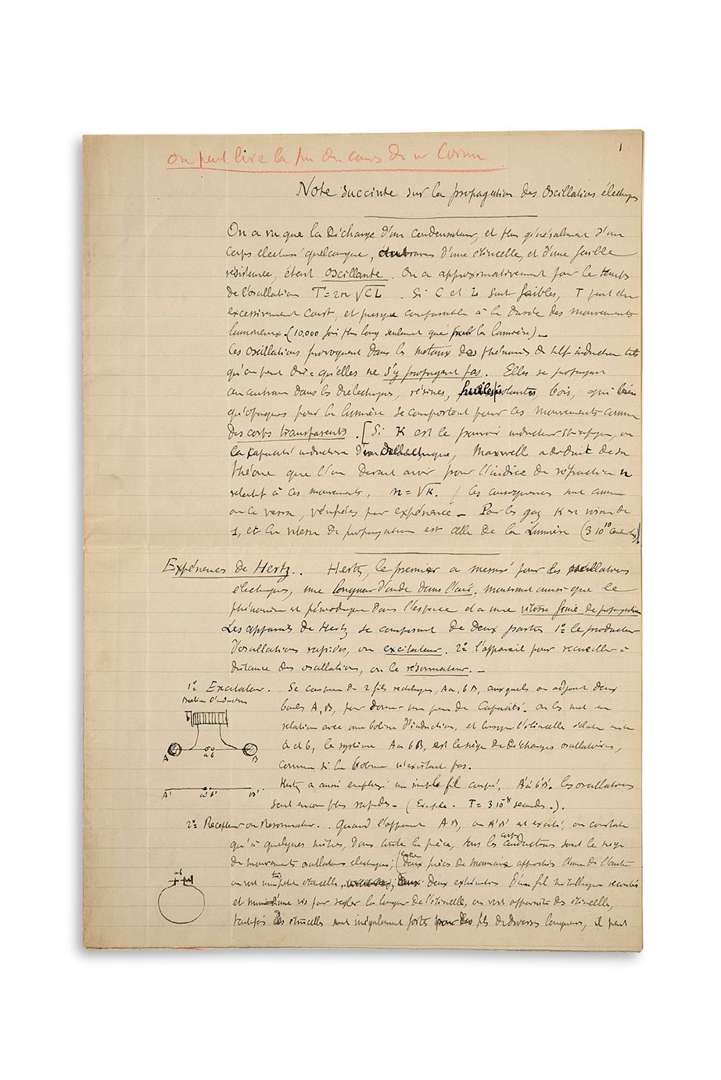 on peut lire la fin du cours de Mr Cornu
1
Note succincte sur la propagation des Oscillations électriques
On a vu que la Décharge d'un condensateur, et plus généralement d'un
corps électrisé quelconque, au travers d'une étincelle, et d'une faible
résistance, était oscillante. On a approximativement pour le temps
de l'oscillation T = 2π √CL. Si C et L sont faibles, T peut être
excessivement court, et presque comparable à la durée des mouvements
lumineux (10,000 fois plus long seulement que la lumière) -
Ces oscillations provoquent dans les métaux des phénomènes de self induction tels
qu'on peut dire qu'elles ne s'y propagent pas. Elles se propagent
au contraire dans les Diélectriques, résines, bois, qui bien
qu'opaques pour la lumière se comportent pour ces mouvements comme
des corps transparents. [Si K est le pouvoir inducteur spécifique, ou
la capacité inductive d'un Diélectrique, Maxwell a déduit de sa
théorie que l'on devait avoir pour l'indice de réfraction n
relatif à ces mouvements, n = √K. Ces conséquences sont comme
on le verra, vérifiées par expérience - Pour les gaz K est voisin de
1, et la vitesse de propagation est celle de la Lumière (3 10¹⁰ ).
Expériences de Hertz.. Hertz, le premier a mesuré pour des oscillations
électriques, une longueur d'onde dans l'air, montrant ainsi que le
phénomène est périodique dans l'espace et a une vitesse finie de propagation
Les appareils de Hertz se composent de deux parties 1º le producteur
d'oscillations rapides, ou excitateur. 2º l'appareil pour recueillir à
distance des oscillations, ou le résonnateur. -
1º Excitateur. Se compose de 2 fils rectilignes, Aa, bB, auxquels on adjoint deux
Bobine d'induction
boules A, B, pour donner un peu de Capacité. on les met en
relation avec une bobine d'induction, et lorsque l'étincelle éclate entre
a et b, le système Aa bB, est le siège de décharges oscillatoires,
comme si la bobine n'existait pas.
A a b B
Hertz a aussi employé un simple fil coupé, A'a' b'B'. les oscillations
A' a' b' B'
sont encore plus rapides - (Exemple. T = 3 10⁻⁸ secondes.).
2º Récepteur ou Résonnateur.. Quand l'appareil A B, ou A'B' est excité, on constate
qu'à quelques mètres, dans toute la pièce, tous les corps conducteurs sont le siège
de mouvements oscillatoires électriques; (entre deux pièces de monnaie approchées l'une de l'autre
on voit une petite étincelle, deux extrémités d'un fil métallique recourbé
et muni d'une vis pour régler la longueur de l'étincelle, on voit apparaître des étincelles,
toutefois les étincelles sont inégalement fortes pour des fils de diverses longueurs, il peut